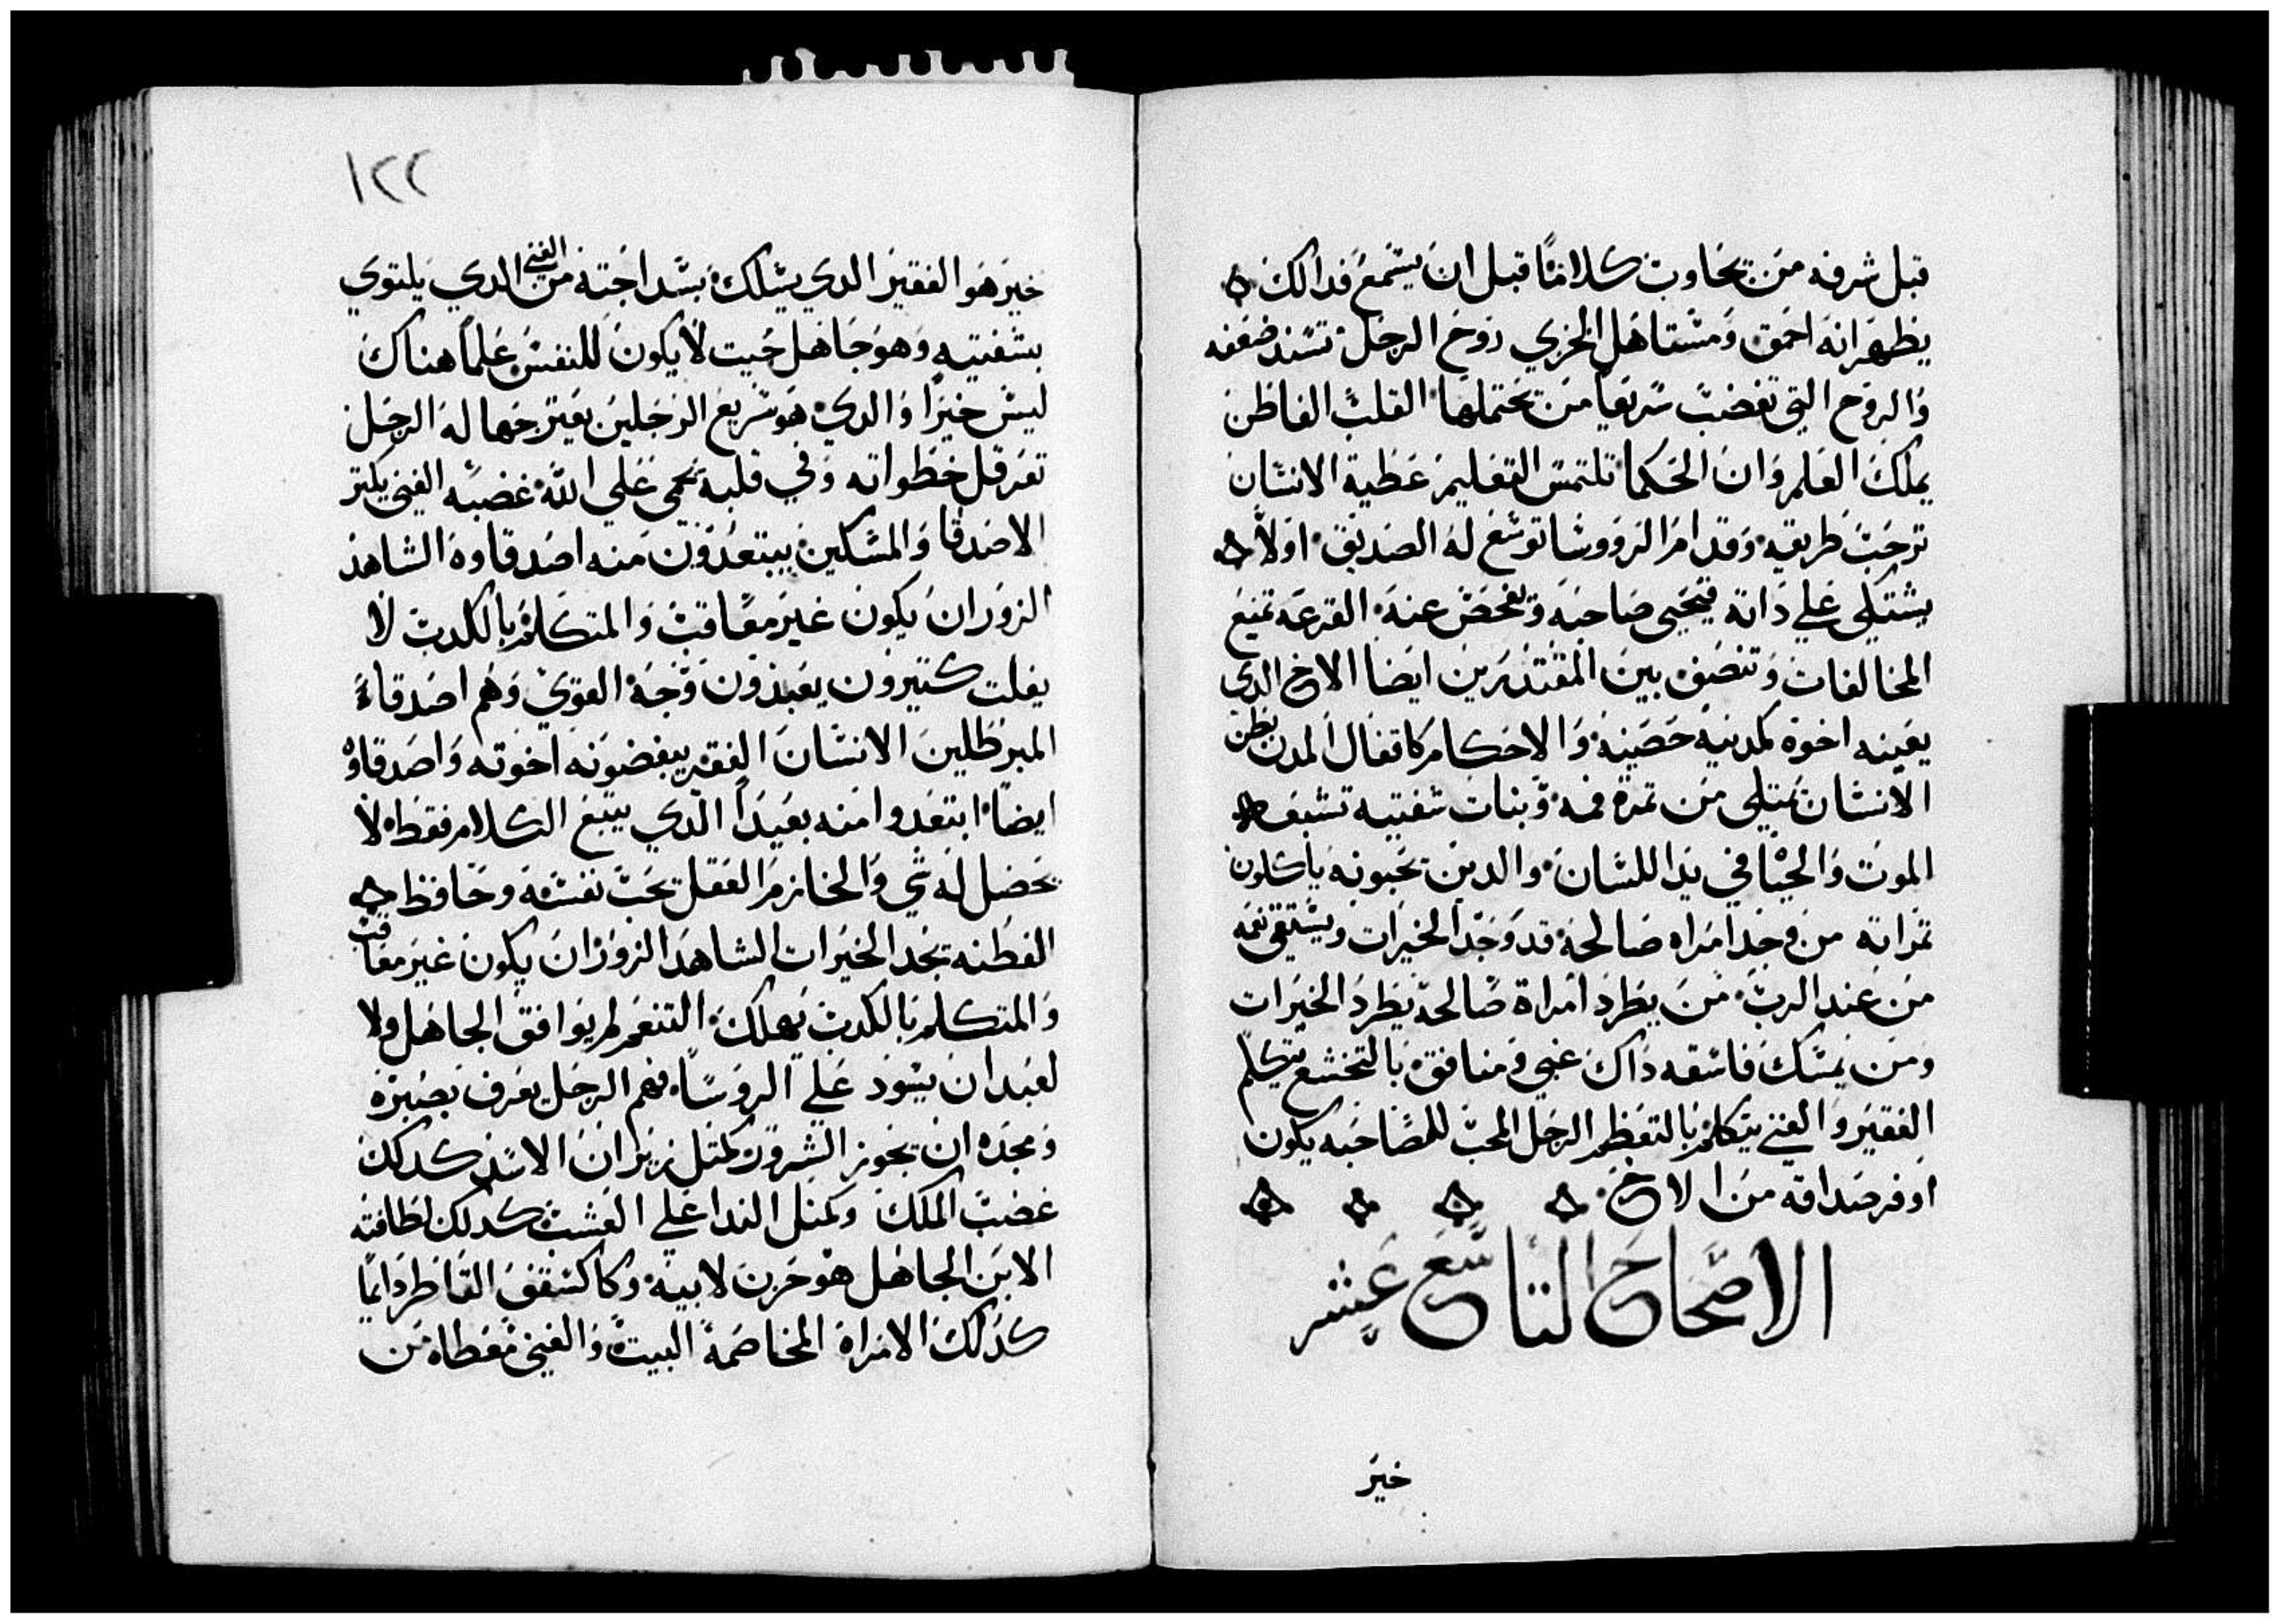 قبل شرفه من يجاوب كلامًا قبل ان يسمع فدالك
يظهر انه احمق ومستاهل الخزي روح الرجل تسند ضعفه
والروح التي تغضب سريعًا من يحتملها القلب الفاطن
يملك العلم وان الحكما تلتمس التعليم عطية الانسان
ترحب طريقه وقدام الرووسا توسع له الصديق اولاً
يشتكي علي داته فيجيي صاحبه ويفحص عنه القرعه تمنع
المخالفات وتنصف بين المقتدرين ايضا الاخ الدي
يعينه اخوه كمدينه حصينه والاحكام كاقفال المدن بطن
الانسان يمتلي من تمرة فمه وبنات شفتيه تشبعه
الموت والحيا في يد اللسان والدين يحبونه ياكلون
تمراته من وجد امراه صالحه قد وجد الخيرات ويستقي نعمه
من عند الرب من يطرد امراة صالحة يطرد الخيرات
ومن يمسك فاسقه داك غبي ومنافق بالتخشع يتكلم
الفقير والغني يتكلم بالتعظم الرجل المحب للمصاحبه يكون
اوفر صداقه من الاخ
الاصحاح التاسع عشر
خير
١٢٢
خير هو الفقير الدي يسلك بسداجته من الغني الدي يلتوي
بشفتيه وهو جاهل حيت لا يكون للنفس علمًا هناك
ليس خيرًا والدي هو سريع الرجلين يعتر جهالة الرجل
تعرقل خطواته وفي قلبه يحمي علي الله غضبه الغني يكتر
الاصدقا والمسكين يبتعدون منه اصدقاوه الشاهد
الزور ان يكون غير معاقب والمتكلم بالكدب لا
يفلت كتيرون يعبدون وجه القوي وهم اصدقاء
المبرطلين الانسان الفقير يبغضونه اخوته واصدقاوه
ايضًا ابتعدوا منه بعيدًا الدي يتبع الكلام فقط لا
يحصل له شي والحازم العقل يحب نفسه وحافظ
الفطنه يجد الخيرات الشاهد الزور ان يكون غير معاقب
والمتكلم بالكدب يهلك التنعم لم يوافق الجاهل ولا
لعبد ان يسود علي الروسا فهم الرجل يعرف بصبره
ومجده ان يجوز الشرور كمتل زيران الاسد كدلك
غضب الملك وكمتل الندا علي العشب كدلك لطافته
الابن الجاهل هو حزن لابيه وكاكسقف القاطر دايمًا
كدلك الامراة المخاصمة البيت والغني معطاه من